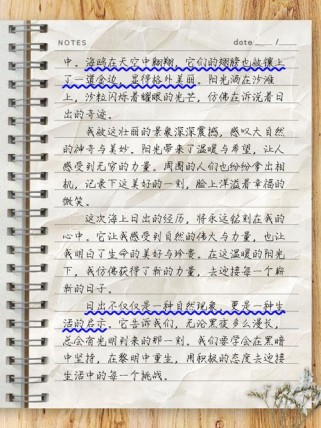 NOTES date ___ /___
中。海鸥在天空中翱翔，它们的翅膀也被镶上
了一道金边，显得格外美丽。阳光洒在沙滩
上，沙粒闪烁着耀眼的光芒，仿佛在诉说着日
出的奇迹。
我被这壮丽的景象深深震撼，感叹大自然
的神奇与美妙。阳光带来了温暖与希望，让人
感受到无穷的力量。周围的人们也纷纷拿出相
机，记录下这美好的一刻，脸上洋溢着幸福的
微笑。
这次海上日出的经历，将永远铭刻在我的
心中。它让我感受到自然的伟大与力量，也让
我明白了生命的美好与珍贵。在这温暖的阳光
下，我仿佛获得了新的力量，去迎接每一个崭
新的日子。
日出不仅仅是一种自然现象，更是一种生
活的启示。它告诉我们，无论黑夜多么漫长，
总会有光明到来的那一刻。我们要学会在黑暗
中坚持，在黎明中重生，用积极的态度去迎接
生活中的每一个挑战。